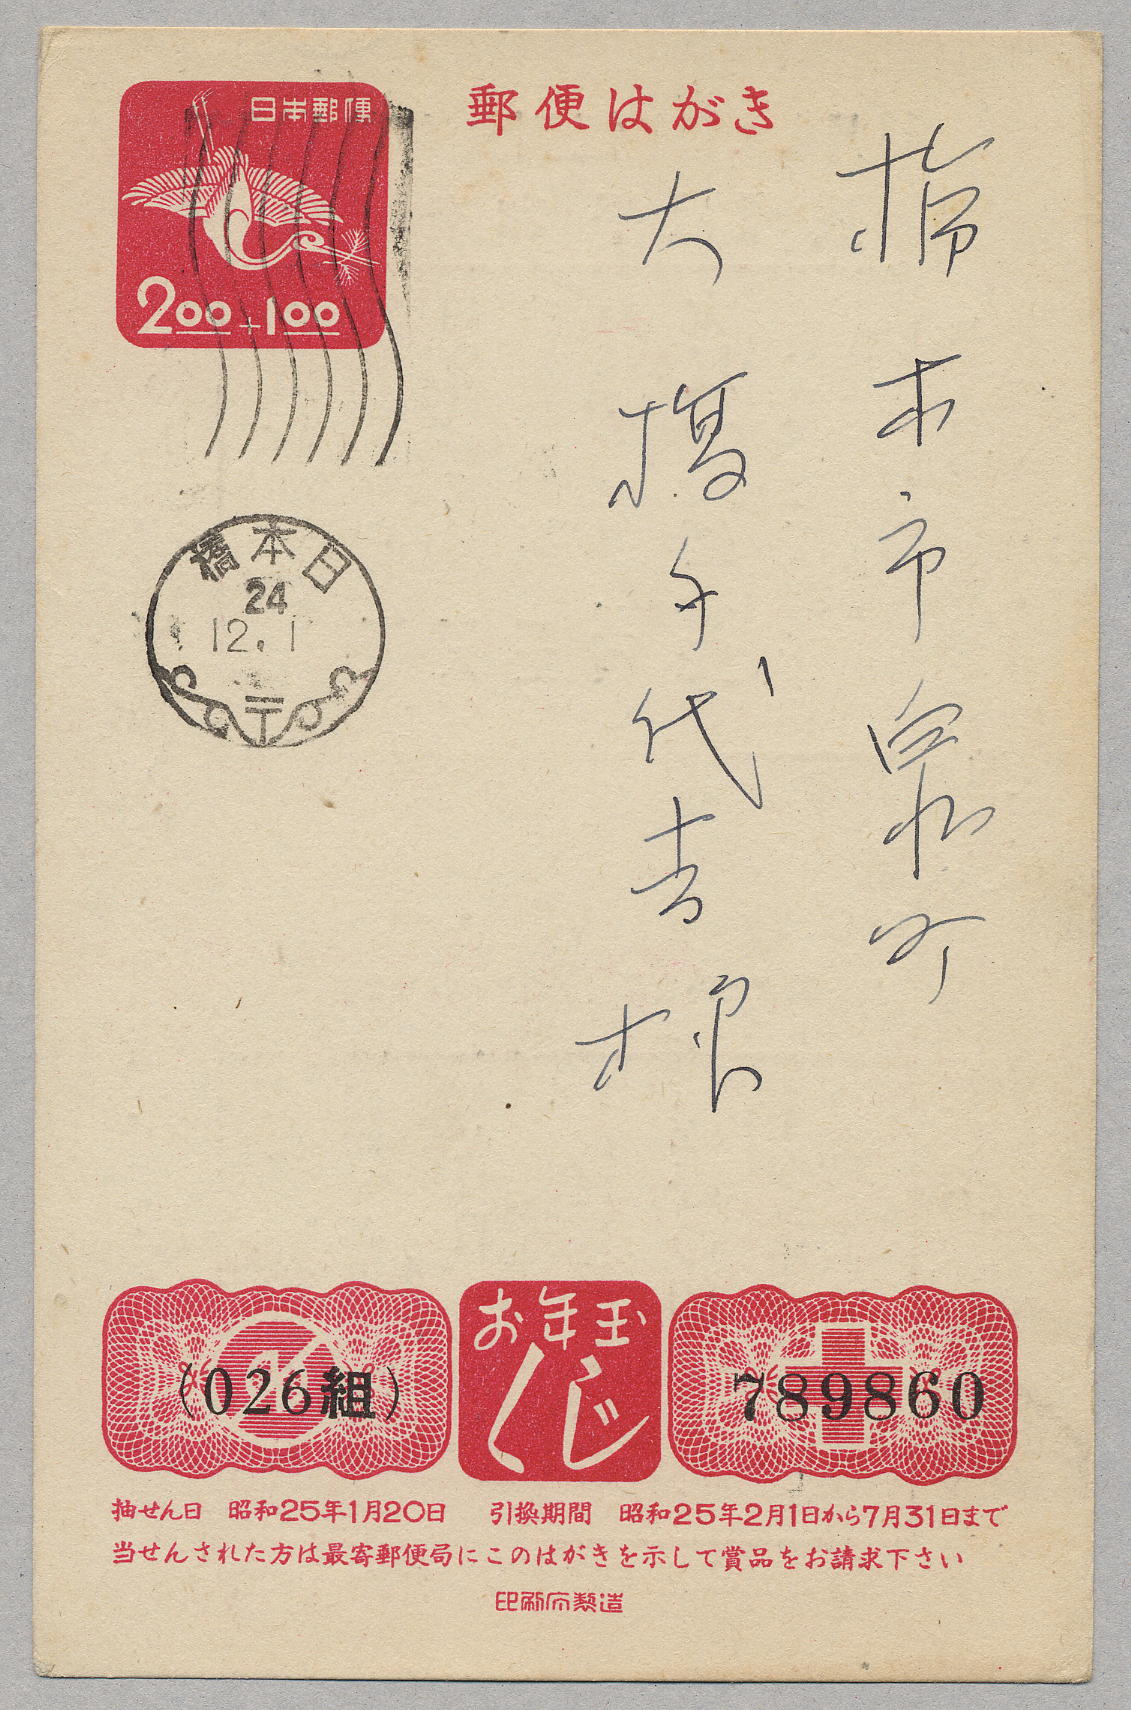 日本郵便
2.00+1.00
郵便はがき
栃木市泉町
大橋千代吉様
日本橋
24
12.1
〒
(026組)
お年玉
くじ
789860
抽せん日 昭和25年1月20日 引換期間 昭和25年2月1日から7月31日まで
当せんされた方は最寄郵便局にこのはがきを示して賞品をお請求下さい
印刷庁製造